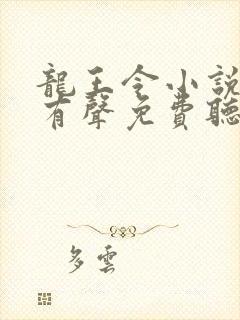 龍王令小說
有聲免費聽
多雲